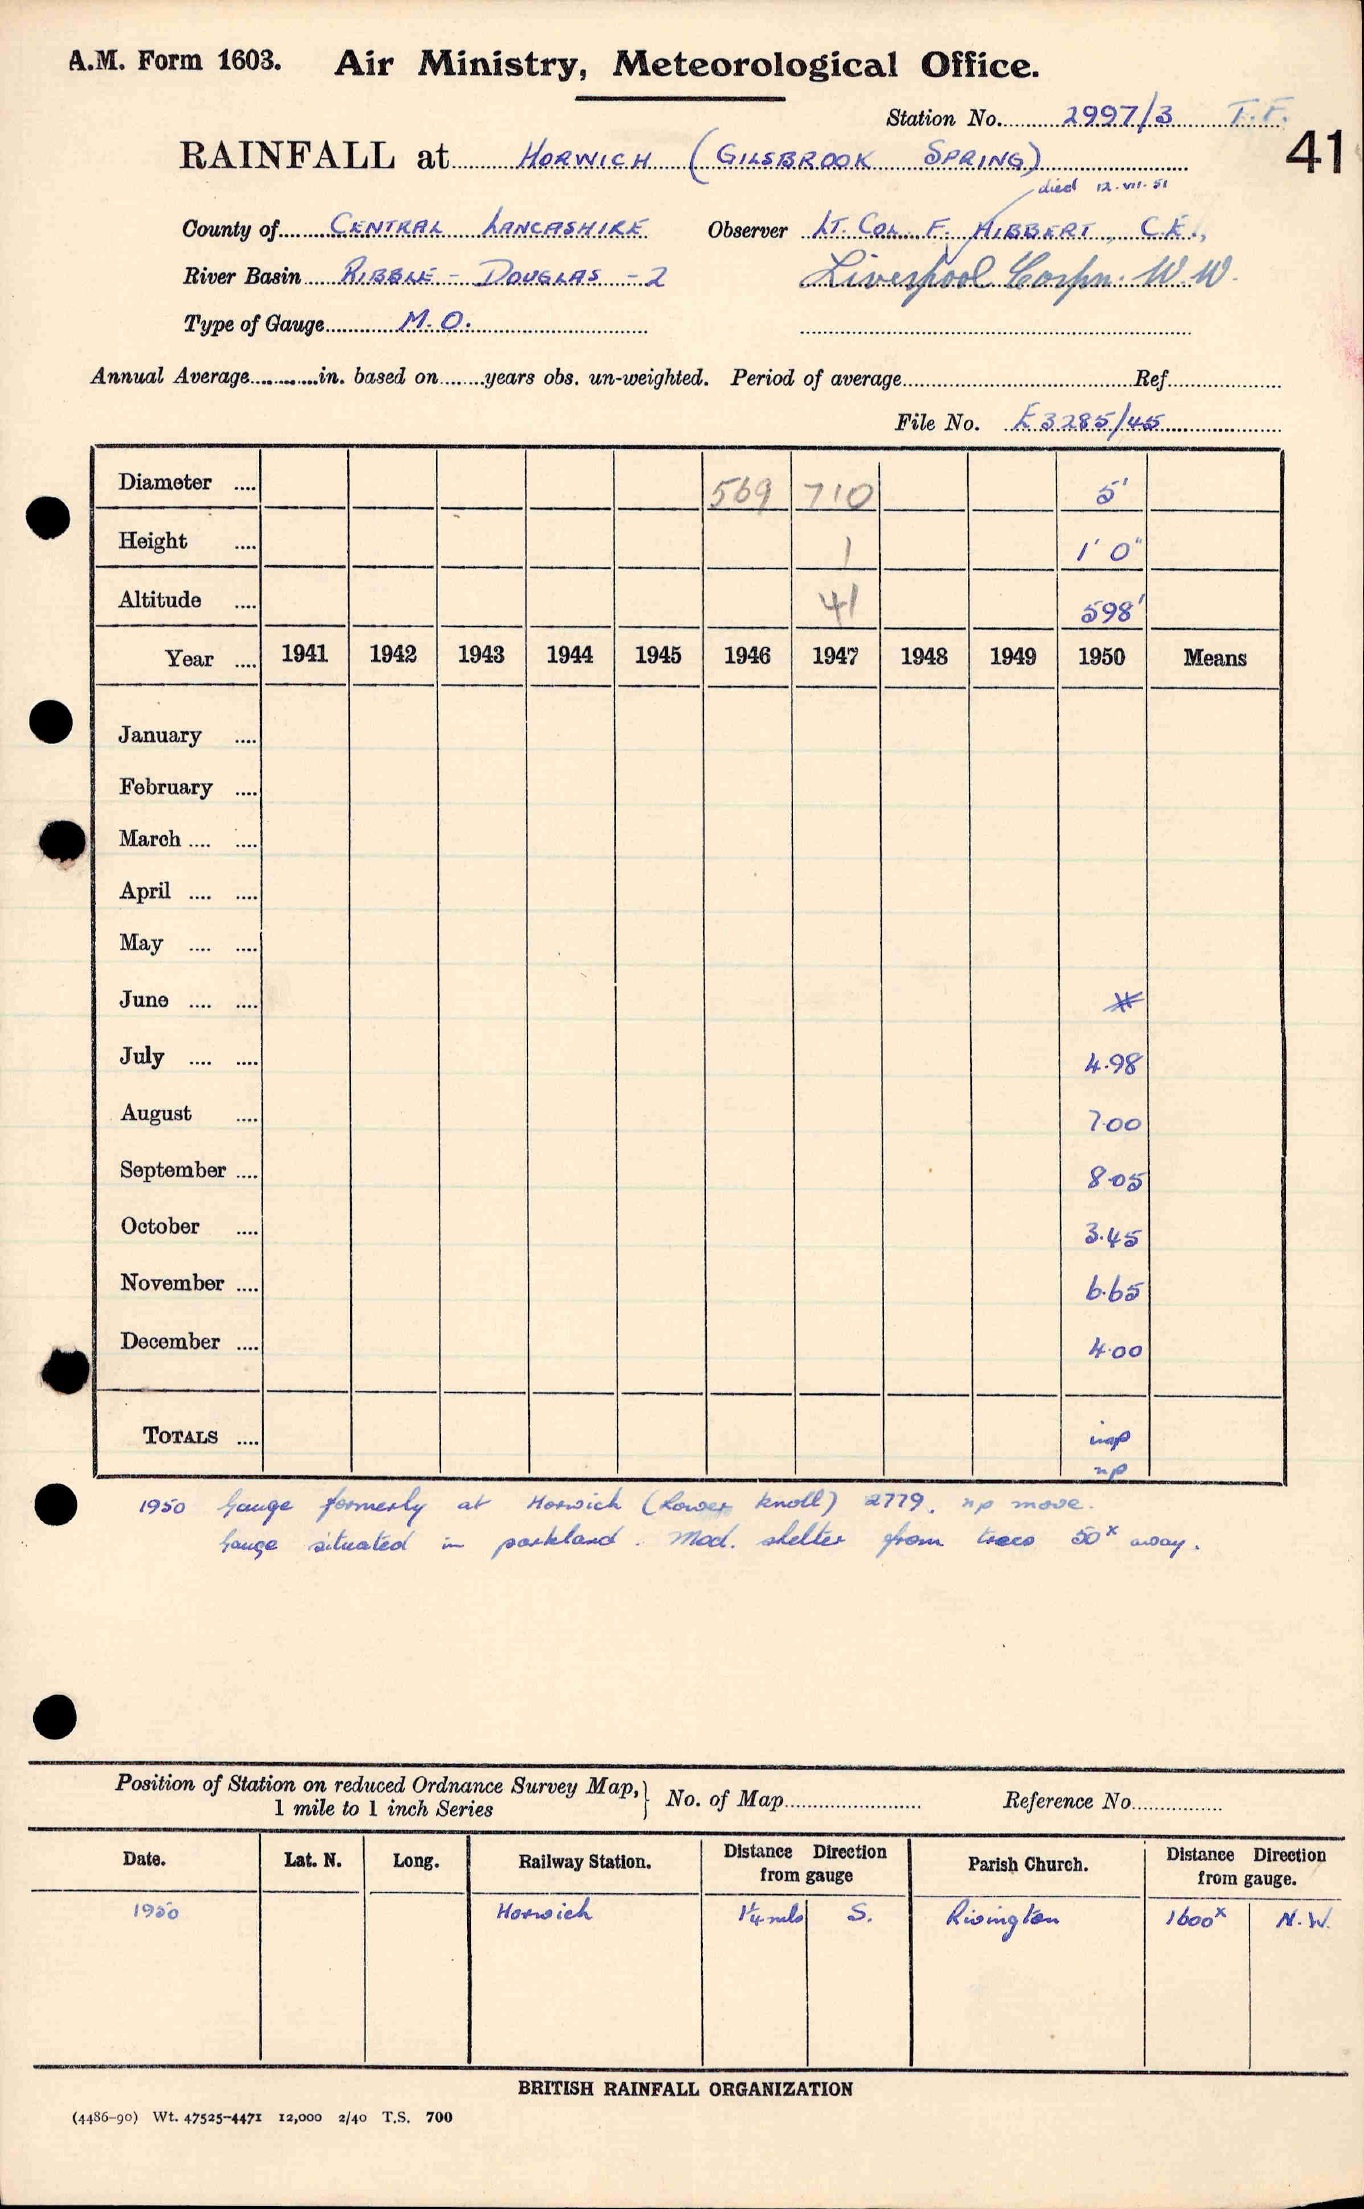 A.M. Form 1603. Air Ministry, Meteorological Office.
Station No. 2997/3 T.F.
41
RAINFALL at HORWICH (GILSBROOK SPRING)
died 12.VII.51
County of CENTRAL LANCASHIRE Observer LT. COL. F. HIBBERT, C.E.,
River Basin RIBBLE - DOUGLAS - 2 Liverpool Corpn. W.W.
Type of Gauge M.O.
Annual Average in. based on years obs. un-weighted. Period of average Ref.
File No. E3285/45
Diameter .... 569 710 5'
Height .... 1 1' 0"
Altitude .... 41 598'
Year .... 1941 1942 1943 1944 1945 1946 1947 1948 1949 1950 Means
January ....
February ....
March .... ....
April .... ....
May .... ....
June .... ....
July .... .... 4.98
August .... 7.00
September .... 8.05
October .... 3.45
November .... 6.65
December .... 4.00
TOTALS .... inp
np
1950 Gauge formerly at Horwich (Lower Knoll) 2779. np move.
Gauge situated in parkland. Mod. shelter from trees 50x away.
Position of Station on reduced Ordnance Survey Map, } No. of Map Reference No.
1 mile to 1 inch Series
Date. Lat. N. Long. Railway Station. Distance Direction from gauge Parish Church. Distance Direction from gauge.
1950 Horwich 1¼ mls S. Rivington 1600x N.W.
BRITISH RAINFALL ORGANIZATION
(4486-90) Wt. 47525-4471 12,000 2/40 T.S. 700